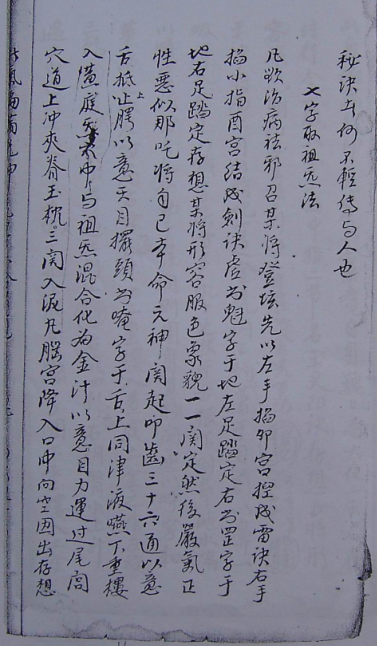 秘訣女何不輕傳与人也
七字取祖炁法
凡欲治病祛邪召某將登坛先以左手掐卯宮控成雷訣右手
掐小指酉宮結成剑訣虛书魁字于地左足踏定右书罡字于
地右足踏定存想某將形容服色象貌一一関定然後嚴氣正
性恶似那吒將自己本命元神関起叩齒三十六通以意
舌抵止上腭以意天目擺頭书唵字于舌上同津液嚥下重楼
入黃庭炁穴中与祖炁混合化为金汁以意目力運过尾闾
穴道上冲夾脊玉枕三関入泥丸腦宮降入口中向空因出存想